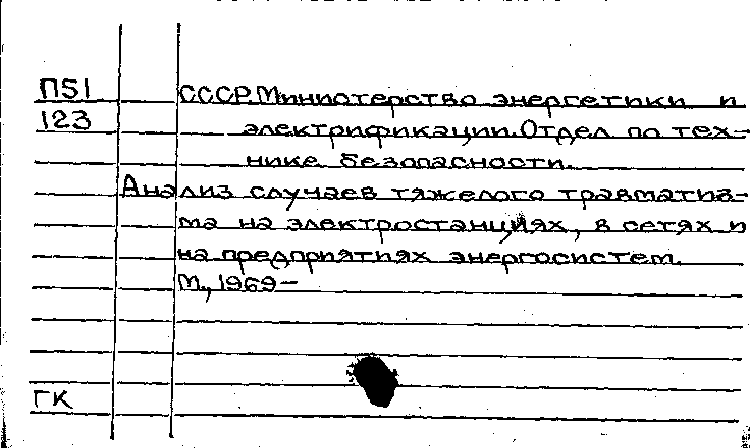 П51 СССР. Министерство энергетики и
123 электрификации. Отдел по тех-
нике безопасности.
Анализ случаев тяжелого травматиз-
ма на электростанциях, в сетях и
на предприятиях энергосистем.
М., 1969—
ГК